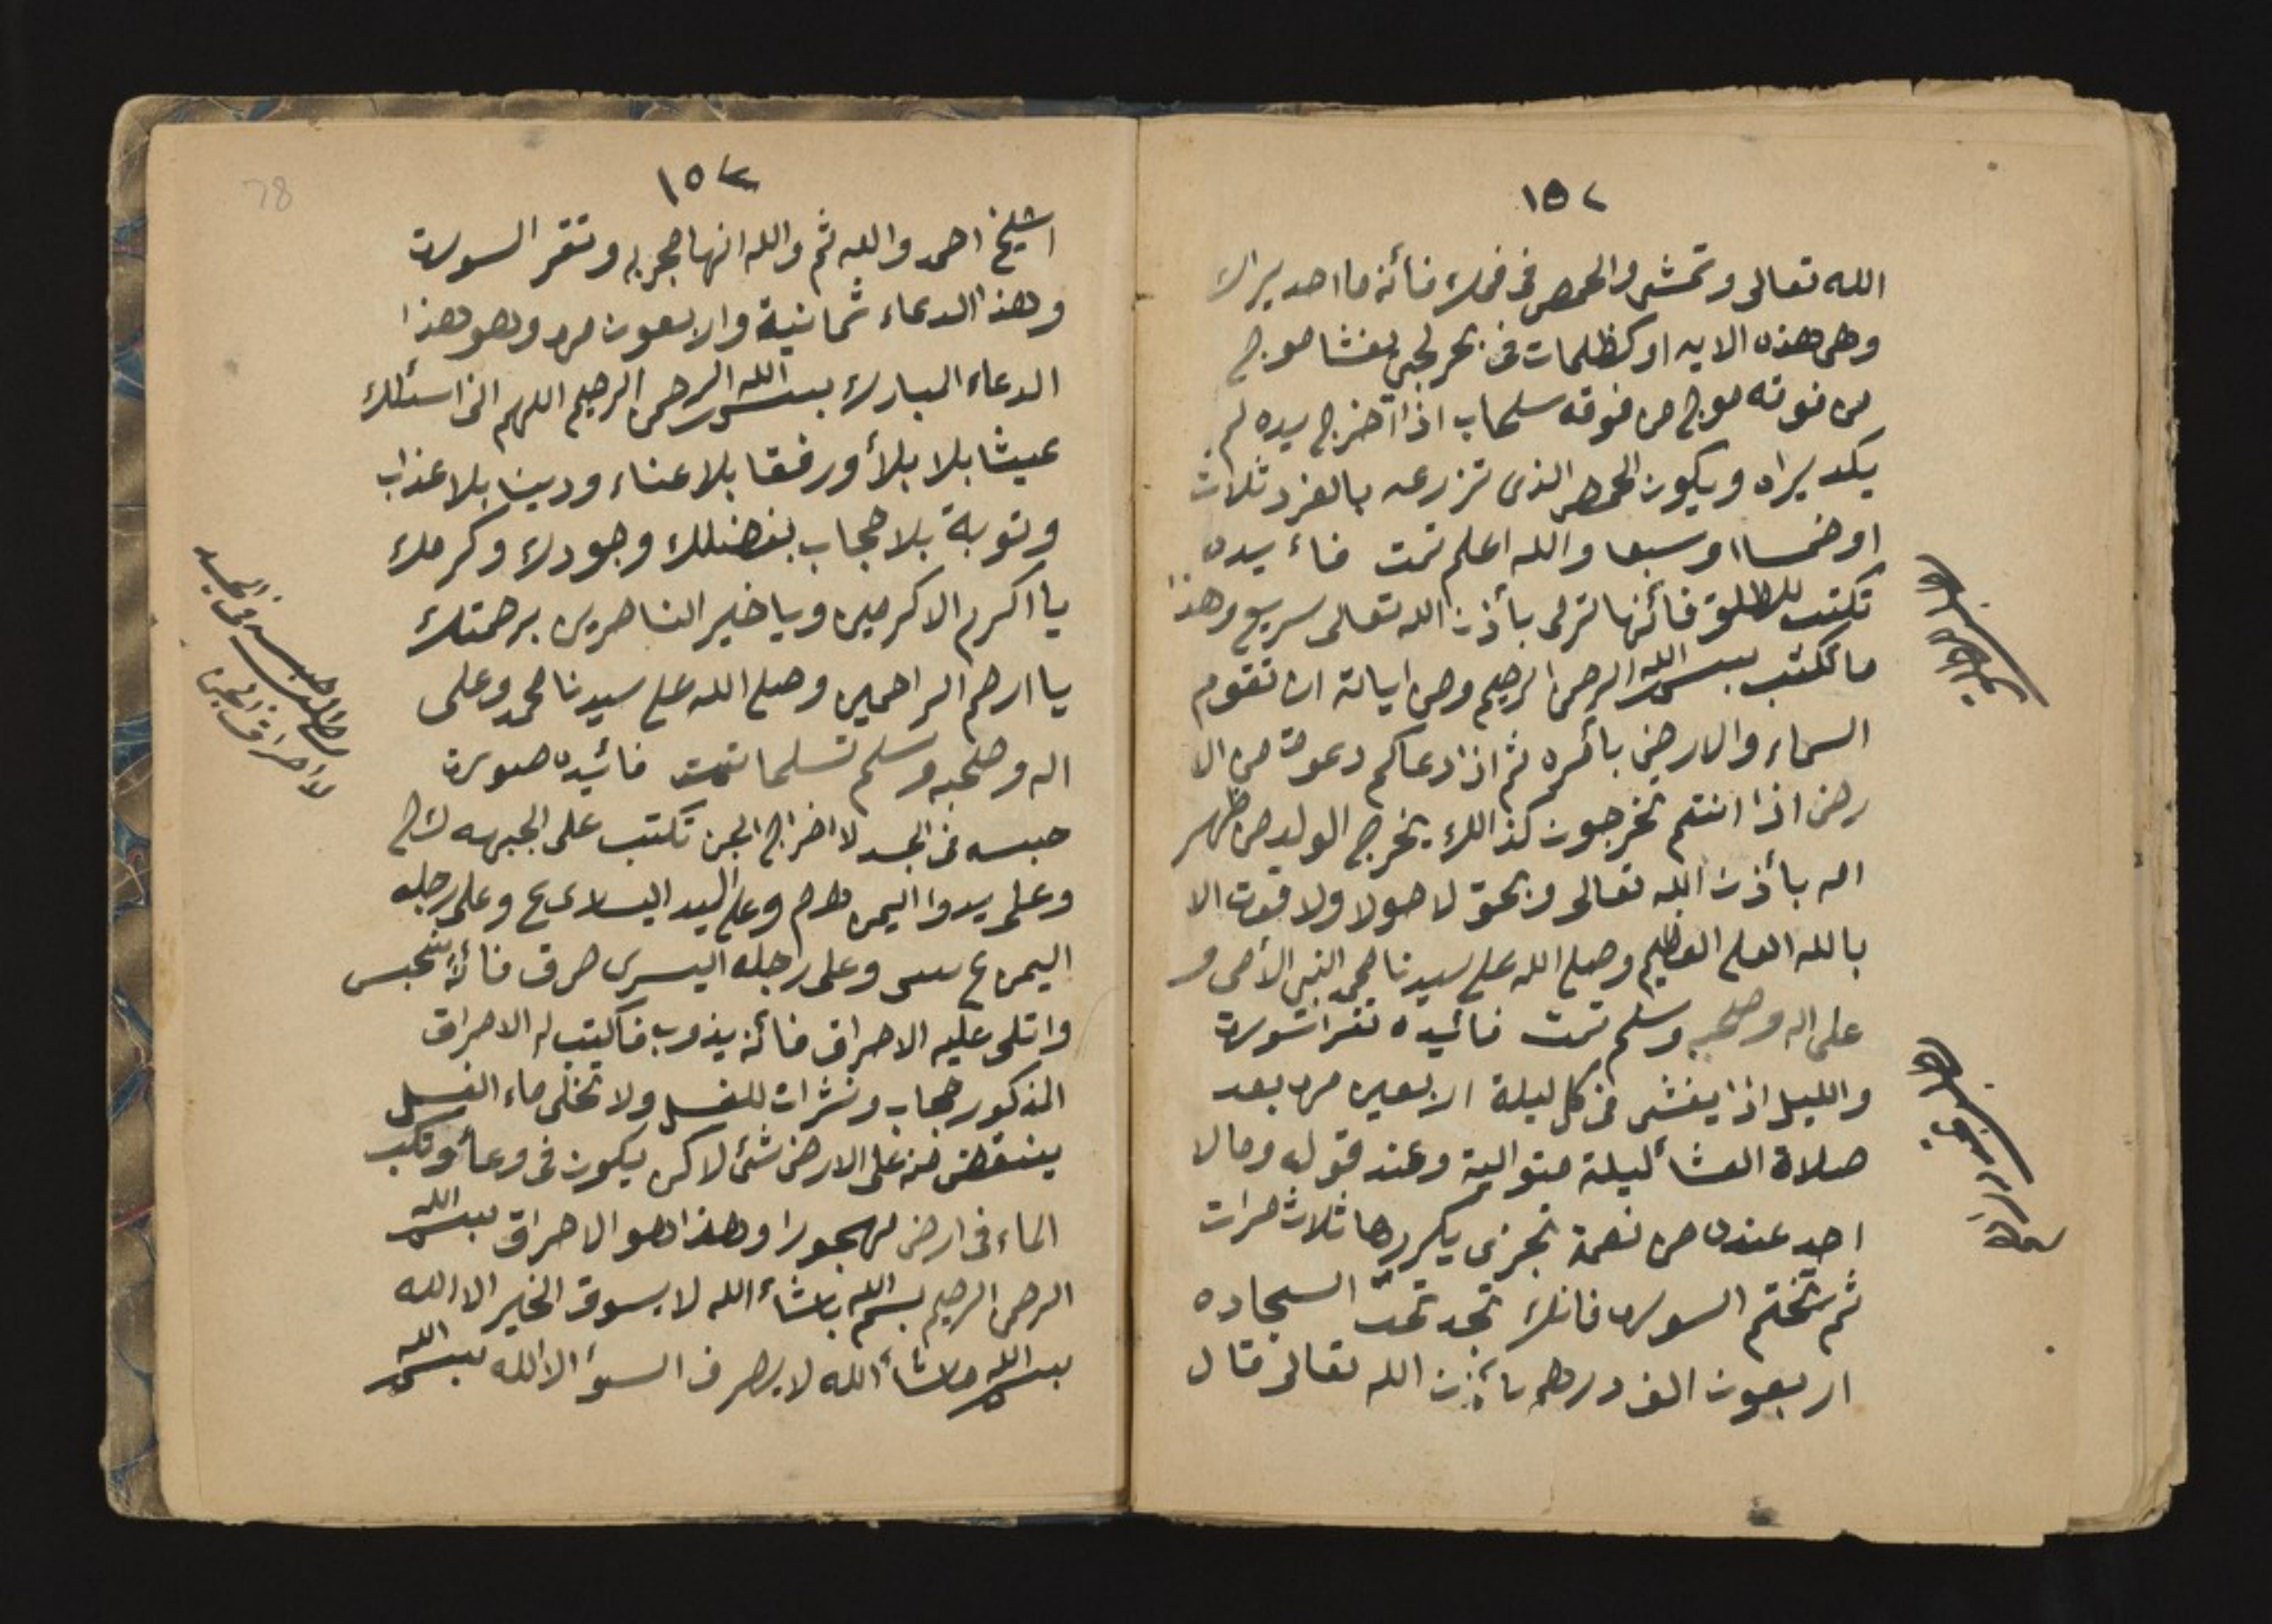 ١٥٢
الله تعالى وتمشى والحمص فى فمك فأنه ما احد يراك
وهى هذه الايه او كظلمات فى بحر لجي يغشا موج
من فوقه موج من فوقه سحاب اذا اخرج يده لم
يكد يراه ويكون الحمص الذى تزرعه بالفرد ثلاث
او خمسا او سبعا والله اعلم تمت فاءيده
تكتب للطلق فأنها ترى بأذن الله تعالى سريع وهذا
ما تكتب بسم الله الرحمن الرحيم ومن اياته ان تقوم
السماء والارض بأمره ثم اذا دعاكم دعوة من ال
رض اذا انتم تخرجون كذالك يخرج الولد من ظهر
امه بأذن الله تعالى وبحق لا حولا ولا قوت الا
بالله العلى العظيم وصلى الله على سيدنا محمد النبى الأمى و
على اله وصحبه وسلم تمت فائيده تقرا سورت
والليل اذا يغشى فى كل ليلة اربعين مره بعد
صلاة العشأ ليلة متوالية وعند قوله وما لا
احد عنده من نعمة تجزى يكررها ثلاث مرات
ثم تختم السوره فانك تجد تحت السجاده
اربعون الف درهم بأذن الله تعالى قال
١٥٣
78
اشيخ احمد والله ثم والله انها مجربه وتقر السورت
وهذ الدعاء ثمانية والاربعون مره وهو هذا
الدعاء المبارك بسم الله الرحمن الرحيم اللهم انى اسئلك
عيشا بلا بلأ ورفقا بلا عناء ودينا بلا عذاب
وتوبة بلا حجاب بفضلك وجودك وكرمك
يا اكرم الاكرمين ويا خير الناصرين برحمتك
يا ارحم الراحمين وصلى الله على سيدنا محمد وعلى
اله وصحبه وسلم تسلما تمت فائيده صورت
حبسه فى الجسد لاخراج الجن تكتب على الجبهه
وعلى يدوا اليمن وعلى اليد اليسارى ع وعلى رجله
اليمن ع وعلى راجله اليسرى حرق فأنه ينحبس
واتلى عليه الاحراق فأنه يذوب فأكتب له الاحراق
المذكور حجاب ونشرات للغسل ولا تخلى ماء الغسل
ينتقض منه على الارض شئ لاكن يكون فى وعأ وتكب
الماء فى ارض مهجورا وهذا هو الاحراق بسم الله
الرحمن الرحيم بسم الله ماشاء الله لا يسوق الخير الا الله
بسم الله ماشأ الله لا يصرف السوأ الا الله بسم الله